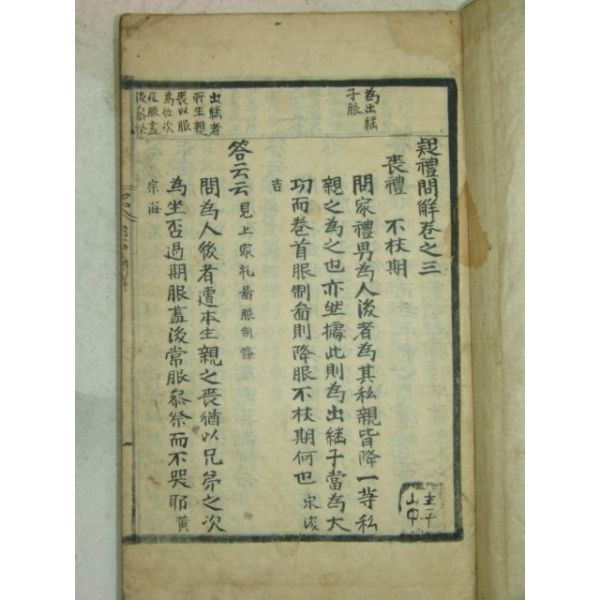 疑禮問解卷之三
喪禮　不杖期
問家禮男為人後者為其私親皆降一等私
親之為之也亦然據此則為出继子當為大
功而卷首服制啚則降服不杖期何也 宋浚
吉
答云云 見上家礼啚服制條
問為人後者遭本生親之喪猶以兄弟之次
為坐否過期服盡後常服參祭而不哭耶 黄
宗海
為出继
子服
出继者
所生親
喪以服
為位次
及服盡
後參祭